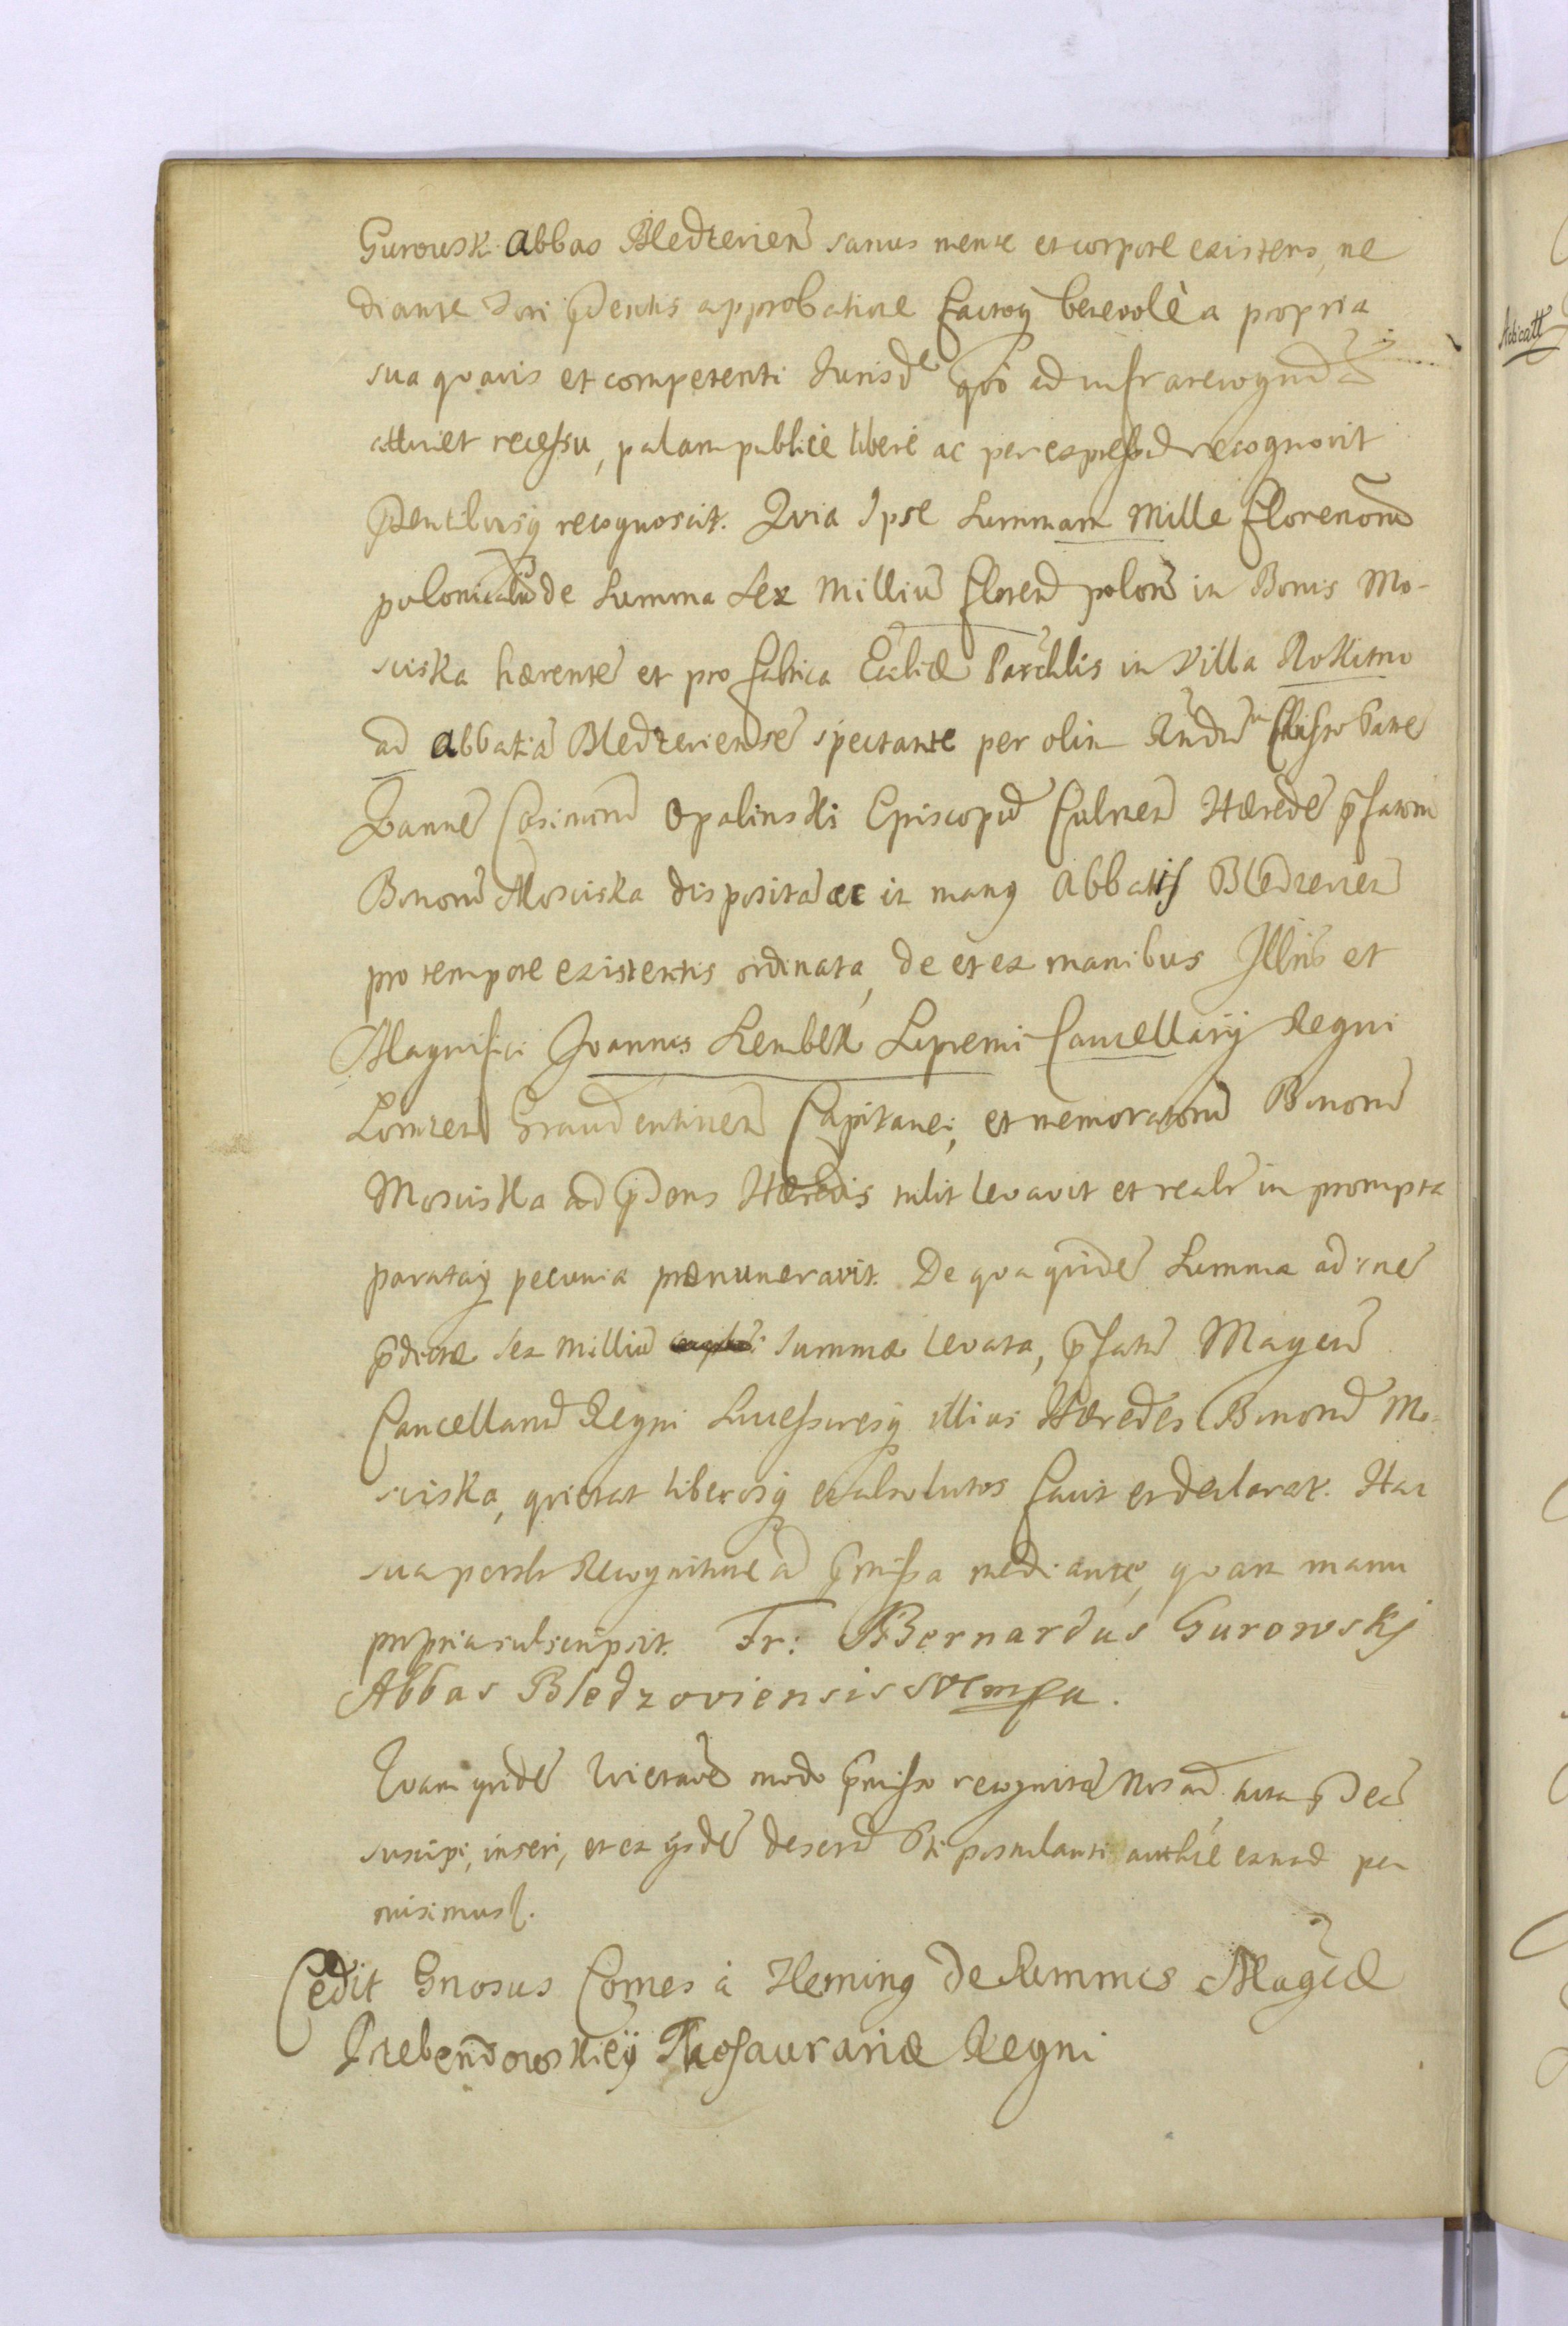 Gurowsk. Abbas Bledzevien sanus mente et corpore existens, me
diante Iuri pdentis approbatione factoq benevolè a propria
sua quavis et competenti Jurisde quò ad infrarecognd
attinet recessu, palam publicè liberè ac per expressum recognovit
pdentibusq recognoscit. Quia Ipse Summam Mille florenorum
polonicaliu de Summa Sex Milliu floren polon in Bonis Mo-
sciska hærente et pro fabrica Ecclie Parchlis in Villa Rokitno
ad abbatia Bledzeviense spectante per olim Rndm Chrisso Patre
Joanne Casimirum Opalinski Episcopum Culmen Hærede pfatoru
Bonorum Mosciska disposita ac in manq abbatis Bledzevien
pro tempore existentis ordinata, de et ex manibus Illris et
Magnifici Joannis Szembek Supremi Cancellarij Regni
Lomzen Graudentinen Capitanei, et memoratorum Bonorum
Mosciska ad pdens Hæredis tulit levavit et realr in prompta
parataq pecunia prænumeravit. De qua quide Summa ad rne
pdictæ sex milliu summæ levata, pfatu Magcum
Cancellarium Regni Successoresq illius Hæredes Bonorum Mo-
sciska, quietat liberosq et absolutos facit et declarat. Hac
sua persli Recognitione ad pmissa mediante, quam manu
propria subscripsit. Fr: Bernardus Gurowskj
Abbas Bledzoviensis SOC mpa.
Quam quide Quietaoe modo pmisso recognita Nos ad acta pdec
suscipi, inseri, et ex ijsde desum Pti postulanti authce extrad per
misimus.
Cedit Gnosus Comes à Fleming de Summis Magcæ
Przebendowskiey Thesaurariæ Regni
Adcitatt